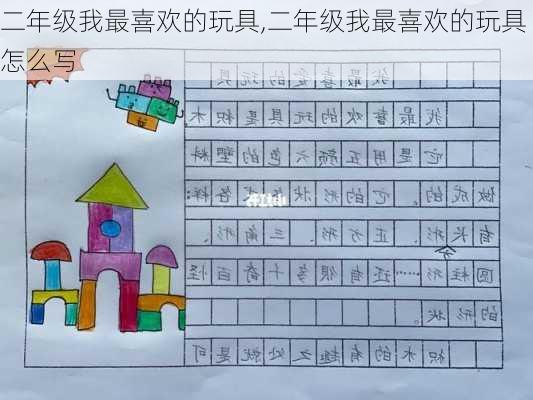 二年级我最喜欢的玩具,二年级我最喜欢的玩具
怎么写
我最喜爱的玩具
我最喜欢的玩具是积木
它是用五颜六色的塑料
做成的。它的形状各样:
有长方形、正方形、三角形、
圆柱形……还有很多千奇百怪
的形状。
积木的有趣之处就是可